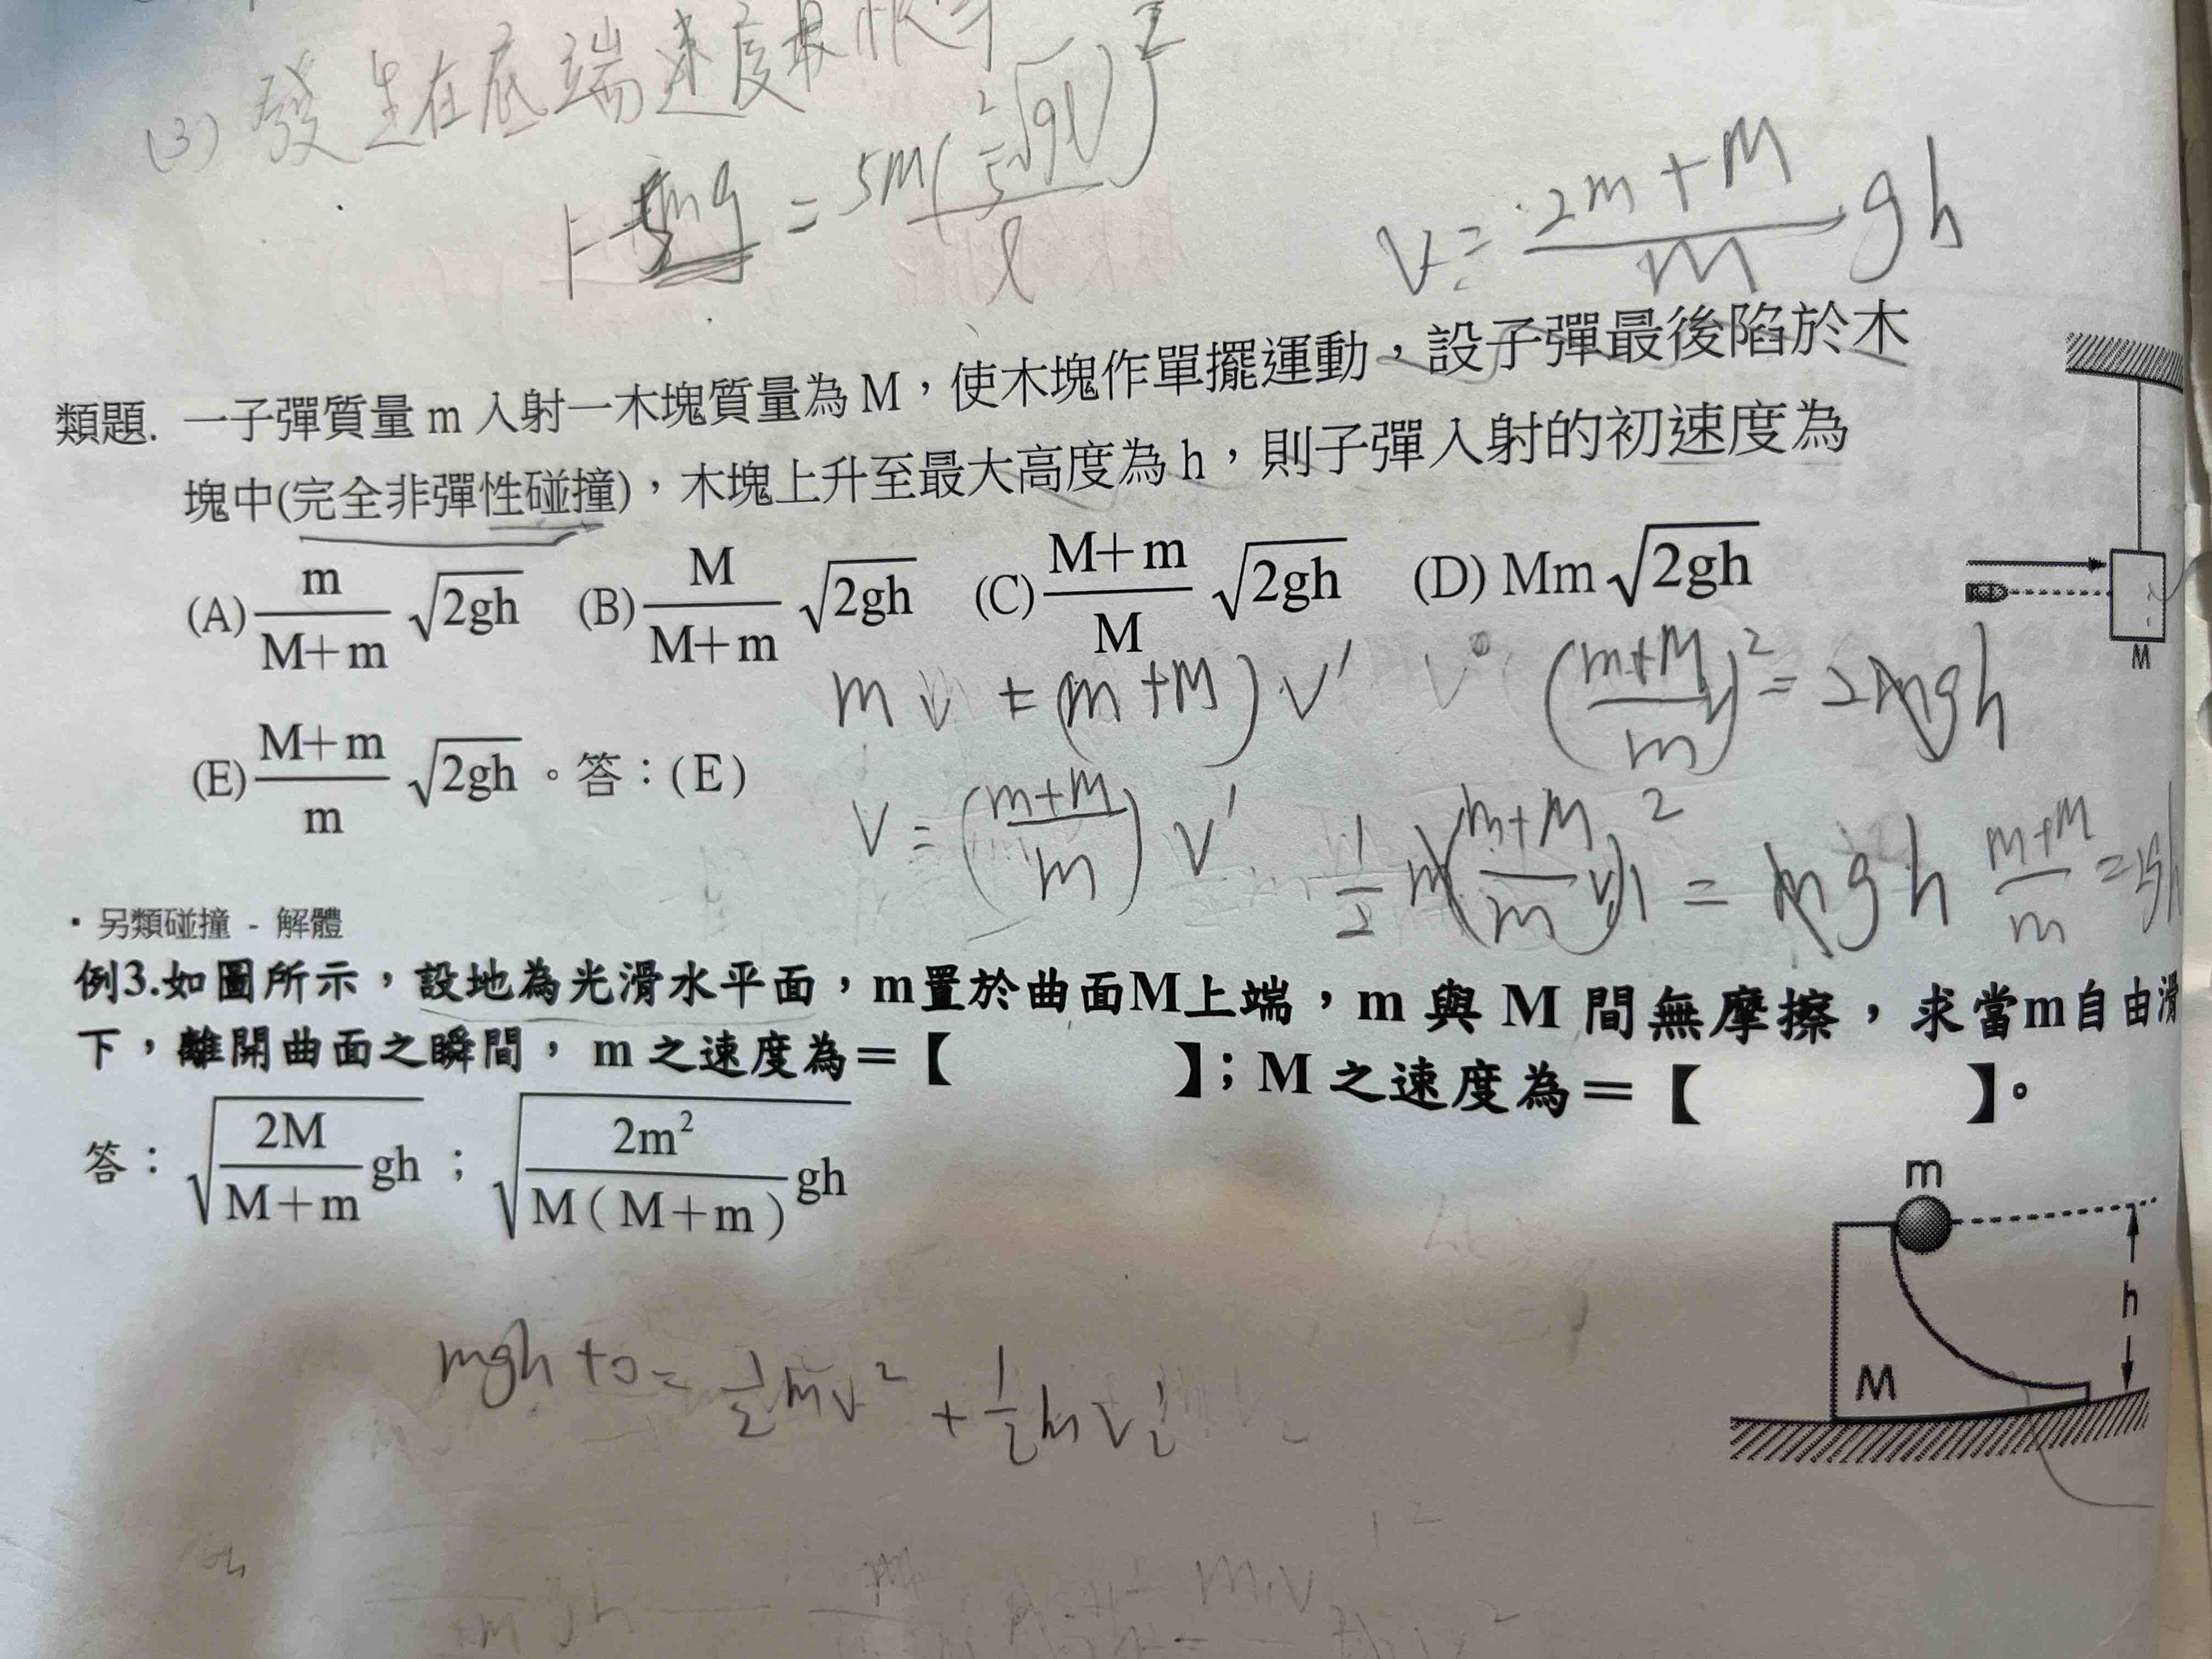 (3) 發生在底端速度最快時
= 5m(2/5√gl)² / l
V = 2m+M / m gh
類題. 一子彈質量 m 入射一木塊質量為 M，使木塊作單擺運動，設子彈最後陷於木
塊中(完全非彈性碰撞)，木塊上升至最大高度為 h，則子彈入射的初速度為
(A) m/M+m √2gh (B) M/M+m √2gh (C) M+m/M √2gh (D) Mm √2gh
M
mv = (m+M) v' (m+M/m)² = 2gh
(E) M+m/m √2gh 。答：(E)
V = (m+M/m) v' 1/2 m(m+M/m v')² = mgh m+M/m =
• 另類碰撞 - 解體
例3.如圖所示，設地為光滑水平面，m置於曲面M上端，m 與 M 間無摩擦，求當m自由滑
下，離開曲面之瞬間， m 之速度為＝【 】；M 之速度為＝【 】。
答： √2M/M+m gh ； √2m²/M(M+m) gh
m
h
M
mgh + 0 = 1/2 mv² + 1/2 m V₂'